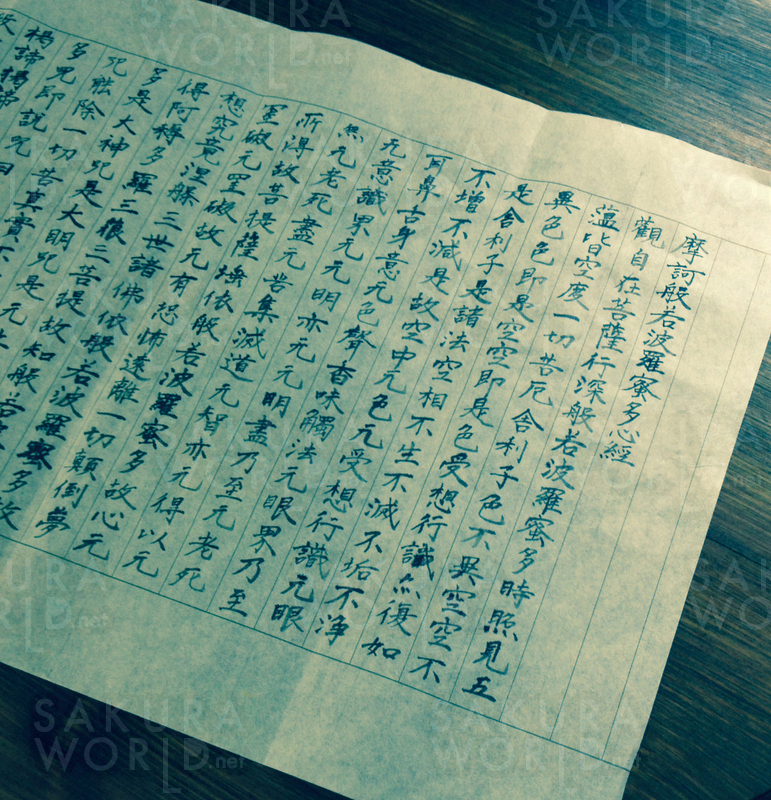 摩訶般若波羅蜜多心經
觀自在菩薩行深般若波羅蜜多時照見五
蘊皆空度一切苦厄舎利子色不異空空不
異色色即是空空即是色受想行識亦復如
是舎利子是諸法空相不生不滅不垢不淨
不増不減是故空中元色元受想行識元眼
耳鼻舌身意元色聲香味觸法元眼界乃至
元意識界元元明亦元元明盡乃至元老死
亦元老死盡元苦集滅道元智亦元得以元
所得故菩提薩埵依般若波羅蜜多故心元
罣礙元罣礙故元有恐怖遠離一切顛倒夢
想究竟涅槃三世諸佛依般若波羅蜜多故
得阿耨多羅三藐三菩提故知般若
多是大神咒是大明咒是元上
咒能除一切苦真實不
多咒即説咒曰
掲諦掲諦
SAKURA
WORLD.net